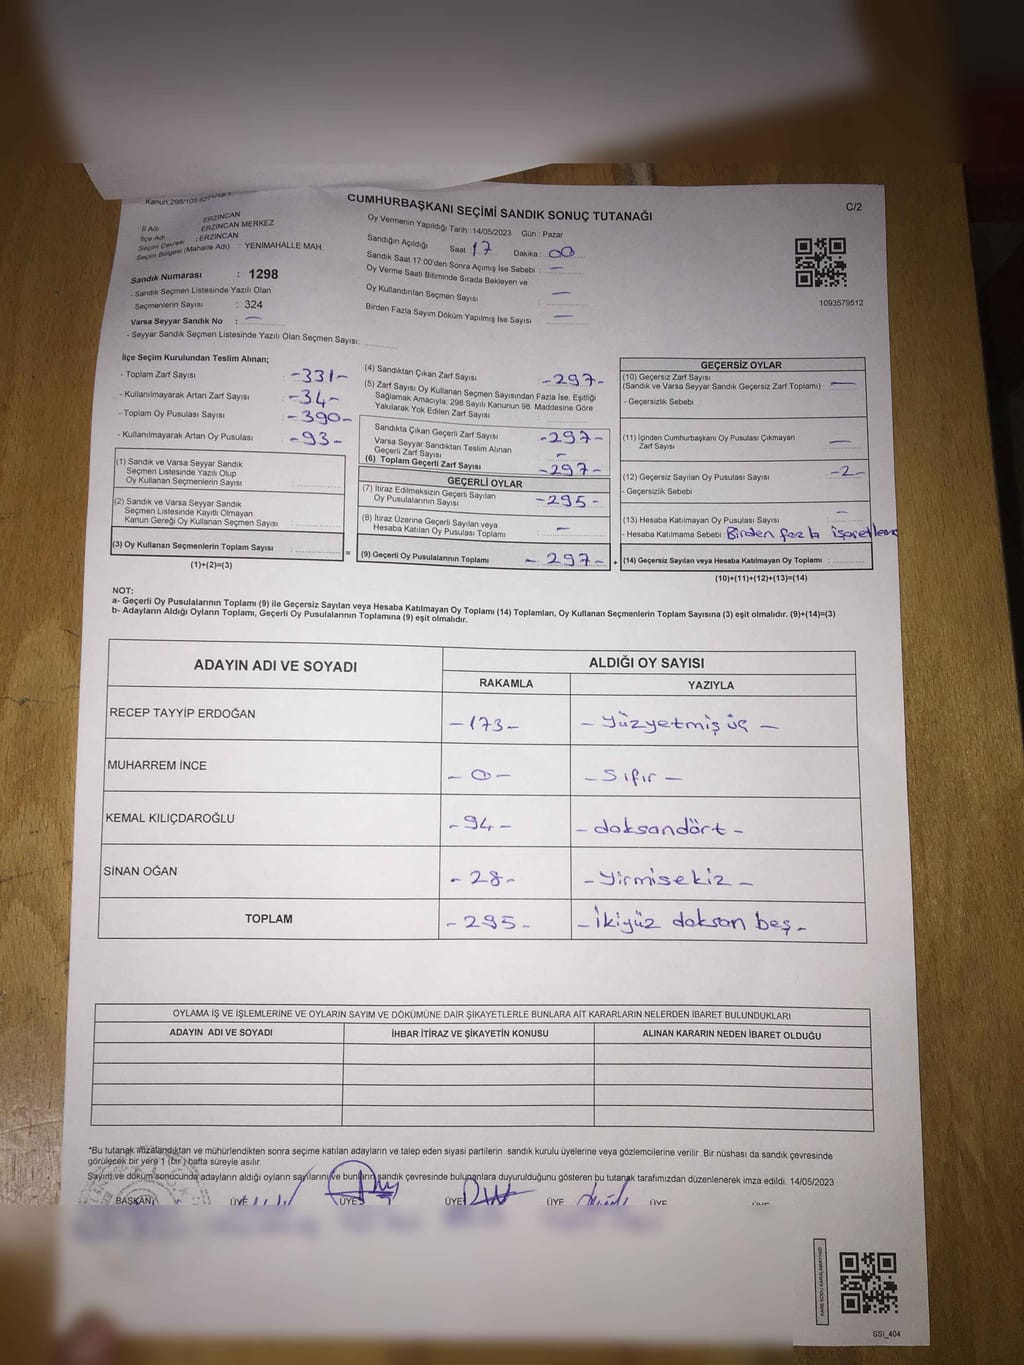 CUMHURBAŞKANI SEÇİMİ SANDIK SONUÇ TUTANAĞI
C/2
İl Adı : ERZİNCAN
İlçe Adı : ERZİNCAN MERKEZ
Seçim Çevresi : ERZİNCAN
Seçim Bölgesi (Mahalle Adı) YENİMAHALLE MAH.
Sandık Numarası : 1298
- Sandık Seçmen Listesinde Yazılı Olan
Seçmenlerin Sayısı : 324
Varsa Seyyar Sandık No : —
- Seyyar Sandık Seçmen Listesinde Yazılı Olan Seçmen Sayısı:
Oy Vermenin Yapıldığı Tarih : 14/05/2023 Gün : Pazar
Sandığın Açıldığı Saat 17 Dakika : 00
Sandık Saat 17:00'den Sonra Açımış İse Sebebi : —
Oy Verme Saati Bitiminde Sırada Bekleyen ve
Oy Kullandırılan Seçmen Sayısı —
Birden Fazla Sayım Döküm Yapılmış İse Sayısı : —
1093579512
İlçe Seçim Kurulundan Teslim Alınan;
- Toplam Zarf Sayısı : -331-
- Kullanılmayarak Artan Zarf Sayısı : -34-
- Toplam Oy Pusulası Sayısı : -390-
- Kullanılmayarak Artan Oy Pusulası : -93-
(1) Sandık ve Varsa Seyyar Sandık
Seçmen Listesinde Yazılı Olup
Oy Kullanan Seçmenlerin Sayısı :
(2) Sandık ve Varsa Seyyar Sandık
Seçmen Listesinde Kayıtlı Olmayan
Kanun Gereği Oy Kullanan Seçmen Sayısı :
(3) Oy Kullanan Seçmenlerin Toplam Sayısı :
(1)+(2)=(3)
=
(4) Sandıktan Çıkan Zarf Sayısı : -297-
(5) Zarf Sayısı Oy Kullanan Seçmen Sayısından Fazla İse, Eşitliği
Sağlamak Amacıyla; 298 Sayılı Kanunun 98. Maddesine Göre
Yakılarak Yok Edilen Zarf Sayısı :
Sandıkta Çıkan Geçerli Zarf Sayısı : -297-
Varsa Seyyar Sandıktan Teslim Alınan
Geçerli Zarf Sayısı : —
(6) Toplam Geçerli Zarf Sayısı : -297-
GEÇERLİ OYLAR
(7) İtiraz Edilmeksizin Geçerli Sayılan
Oy Pusulalarının Sayısı : -295-
(8) İtiraz Üzerine Geçerli Sayılan veya
Hesaba Katılan Oy Pusulası Toplamı : —
(9) Geçerli Oy Pusulalarının Toplamı : -297-
+
GEÇERSİZ OYLAR
(10) Geçersiz Zarf Sayısı
(Sandık ve Varsa Seyyar Sandık Geçersiz Zarf Toplamı) : —
- Geçersizlik Sebebi :
(11) İçinden Cumhurbaşkanı Oy Pusulası Çıkmayan
Zarf Sayısı : —
(12) Geçersiz Sayılan Oy Pusulası Sayısı : -2-
- Geçersizlik Sebebi :
(13) Hesaba Katılmayan Oy Pusulası Sayısı : —
- Hesaba Katılmama Sebebi : Birden fazla
(14) Geçersiz Sayılan veya Hesaba Katılmayan Oy Toplamı :
(10)+(11)+(12)+(13)=(14)
NOT:
a- Geçerli Oy Pusulalarının Toplamı (9) ile Geçersiz Sayılan veya Hesaba Katılmayan Oy Toplamı (14) Toplamları, Oy Kullanan Seçmenlerin Toplam Sayısına (3) eşit olmalıdır. (9)+(14)=(3)
b- Adayların Aldığı Oyların Toplamı, Geçerli Oy Pusulalarının Toplamına (9) eşit olmalıdır.
ADAYIN ADI VE SOYADI ALDIĞI OY SAYISI
RAKAMLA YAZIYLA
RECEP TAYYİP ERDOĞAN -173- -Yüzyetmiş üç-
MUHARREM İNCE -0- -Sıfır-
KEMAL KILIÇDAROĞLU -94- -doksandört-
SİNAN OĞAN -28- -Yirmisekiz-
TOPLAM -295- -İkiyüz doksan beş-
OYLAMA İŞ VE İŞLEMLERİNE VE OYLARIN SAYIM VE DÖKÜMÜNE DAİR ŞİKAYETLERLE BUNLARA AİT KARARLARIN NELERDEN İBARET BULUNDUKLARI
ADAYIN ADI VE SOYADI İHBAR İTİRAZ VE ŞİKAYETİN KONUSU ALINAN KARARIN NEDEN İBARET OLDUĞU
*Bu tutanak imzalandıktan ve mühürlendikten sonra seçime katılan adayların ve talep eden siyasi partilerin sandık kurulu üyelerine veya gözlemcilerine verilir. Bir nüshası da sandık çevresinde
görülecek bir yere 1 (bir) hafta süreyle asılır.
Sayım ve döküm sonucunda adayların aldığı oyların sayılarını ve bunların sandık çevresinde bulunanlara duyurulduğunu gösteren bu tutanak tarafımızdan düzenlenerek imza edildi. 14/05/2023
BAŞKAN ÜYE ÜYE ÜYE ÜYE ÜYE
KARE KODU KARALAMAYINIZ!
SSI_404